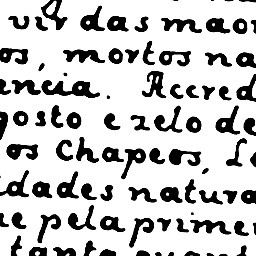 vir das maor
os, mortos na
encia. Accred
gosto e zelo de
os Chapeos, Le
idades natura
ue pela primei
tanto quant